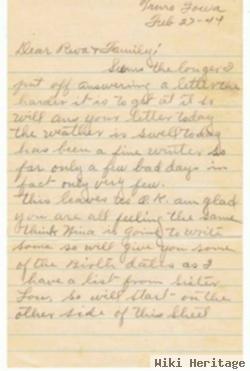 Truro Iowa
Feb 27-44
Dear Reva & Family:
Seems the longer I
put off answering a letter the
harder it is to get at it so
will ans your letter today
the weather is swell today
has been a fine winter so
far only a few bad days in
fact only very few.
This leaves us O.K. am glad
you are all feeling the same
think Nina is going to write
some so will give you some
of the Birth dates as I
have a list from Sister
Lou, so will start on the
other side of this sheet
Wiki Heritage